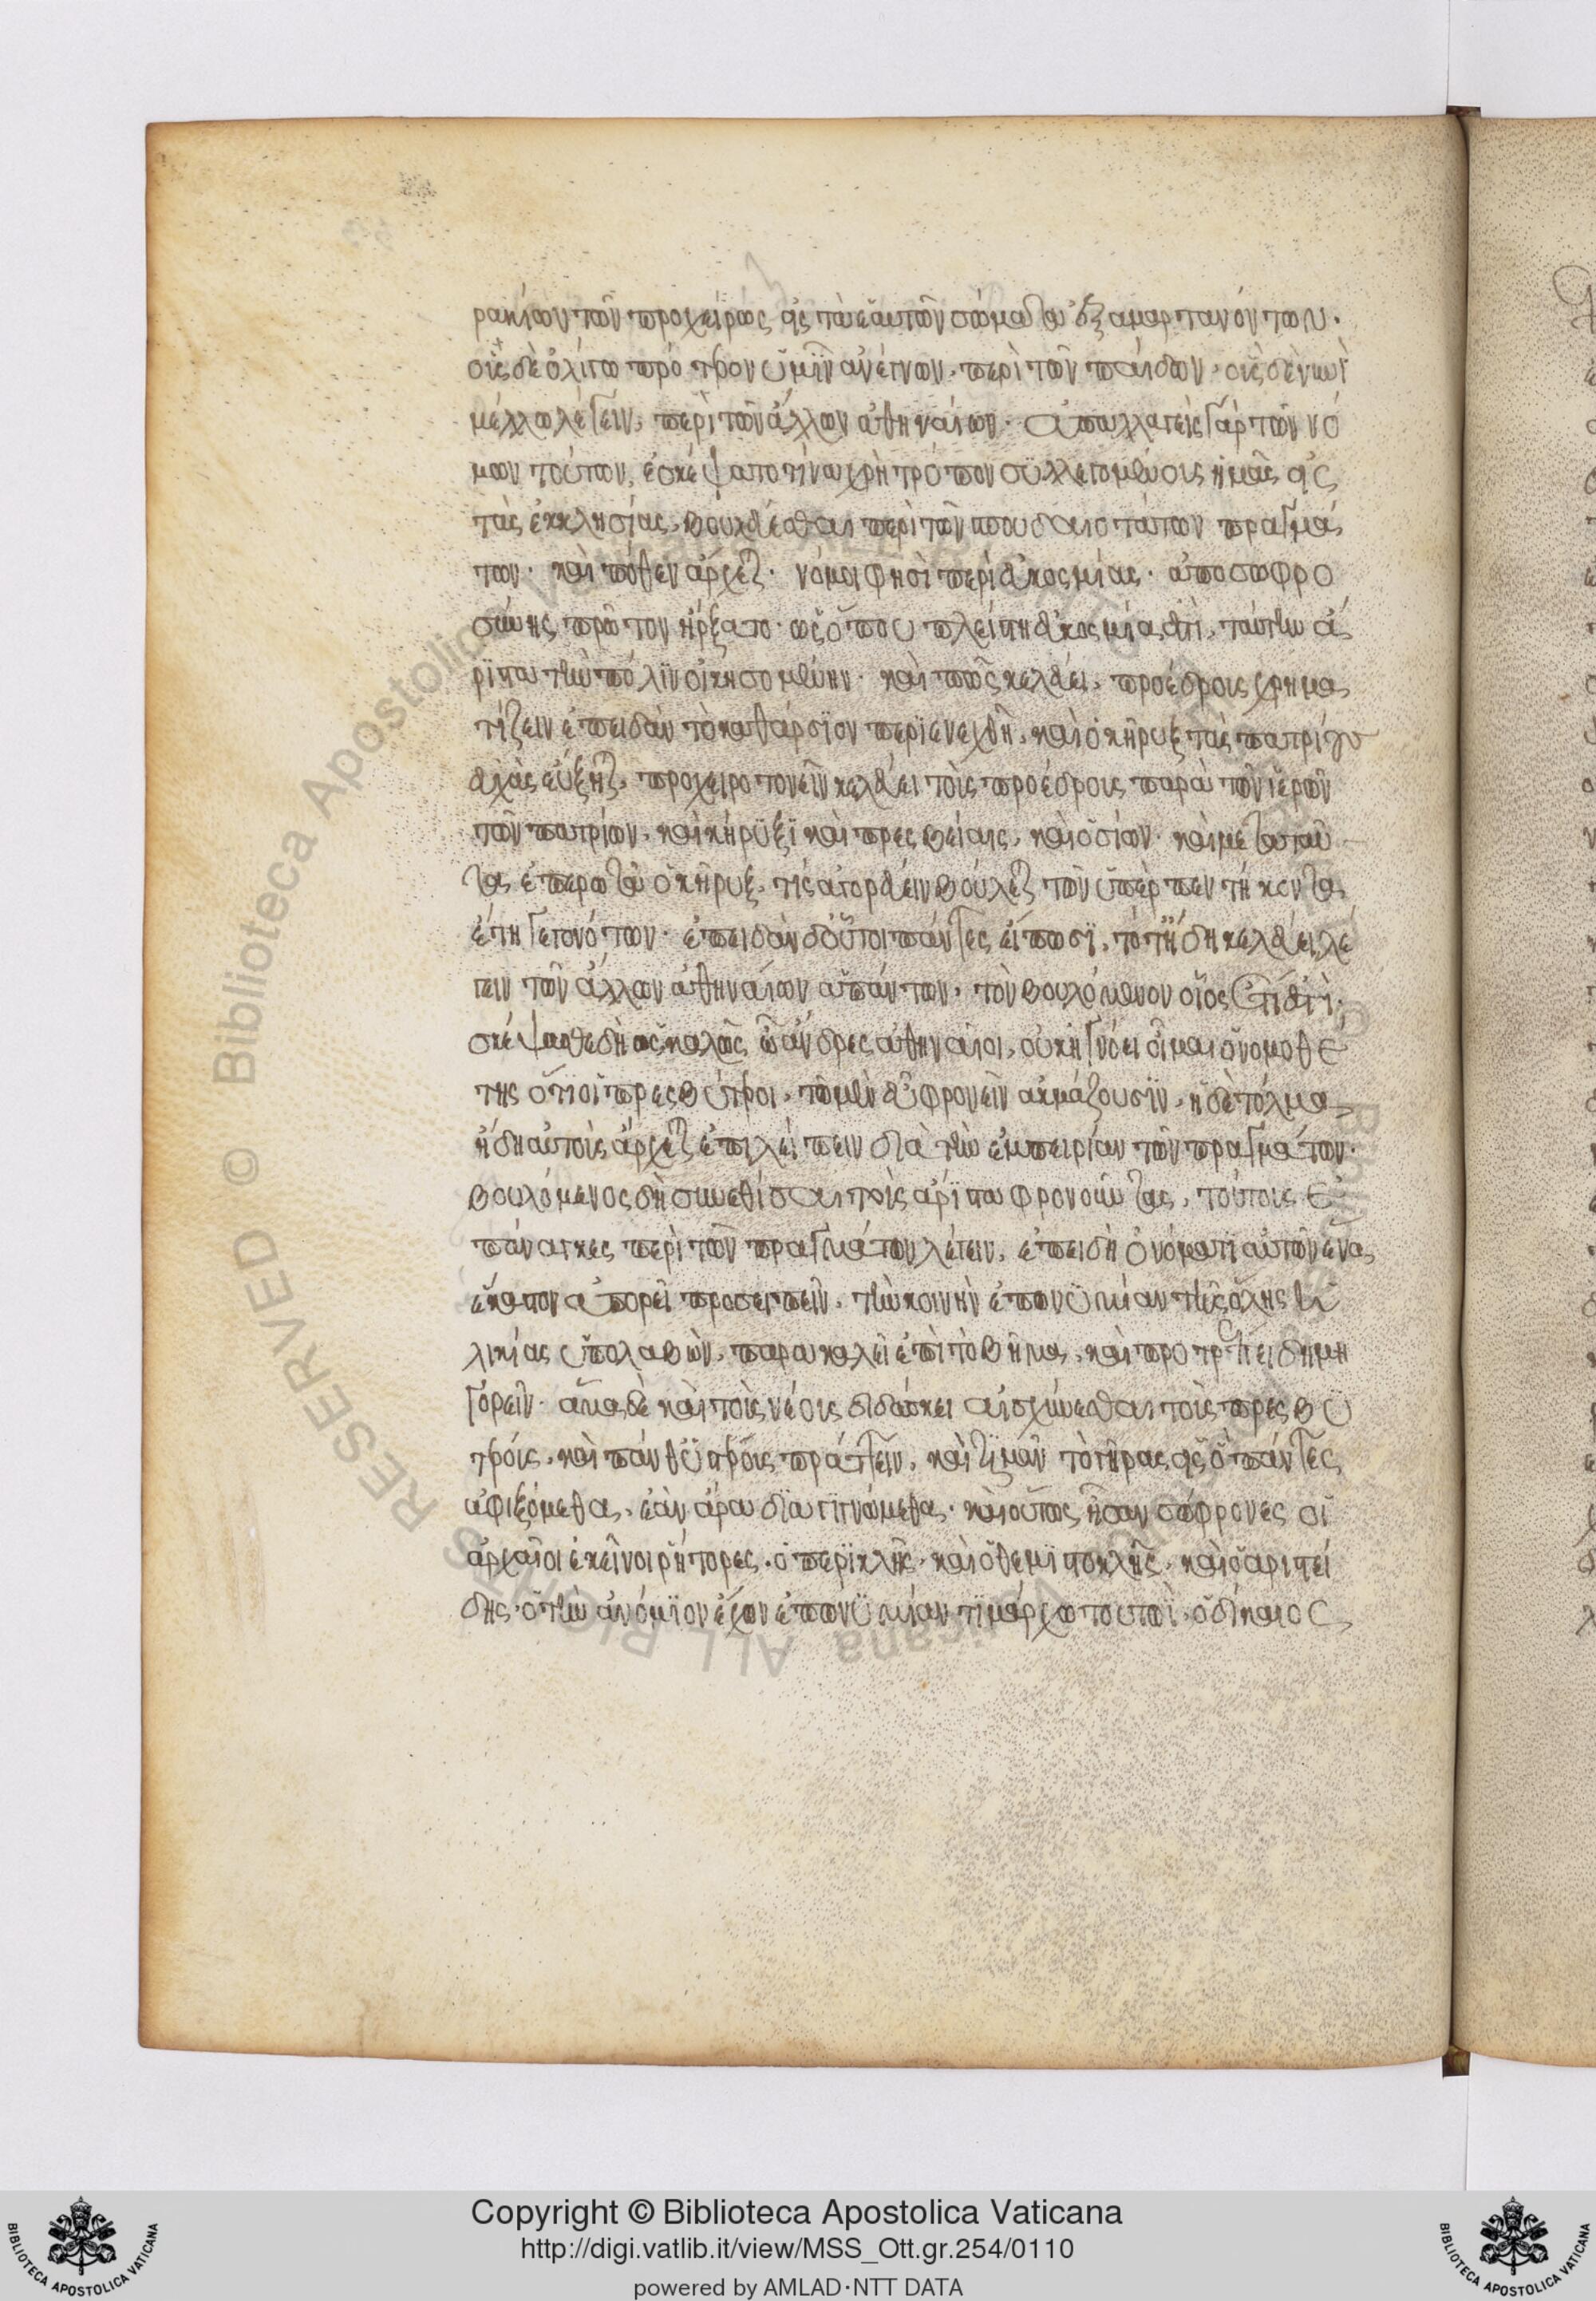 ρακίων τῶν προχείρως εἰς τὰ ἑαυτῶν σώματα ἐξαμαρτανόντων·
οὓς δὲ ὀλίγω πρότερον ὑμῖν ἀνέγνων, περὶ τῶν παίδων, οὓς δὲ νυνὶ
μέλλω λέγειν, περὶ τῶν ἄλλων ἀθηναίων· ἀπαλλαγεὶς γὰρ τῶν νό
μων τούτων, ἐσκέψατο τίνα χρὴ τρόπον συλλεγομένους ἡμᾶς εἰς
τὰς ἐκκλησίας, βουλεύεσθαι περὶ τῶν σπουδαιοτάτων πραγμά
των· καὶ πόθεν ἄρχεται· νόμοι φησὶ περὶ εὐκοσμίας· ἀπὸ σωφρο
σύνης πρῶτον ἤρξατο· ὡς ὅπου πλείστη εὐκοσμία ἐστὶ, ταύτην ἄ
ριστα τὴν πόλιν οἰκησομένην· καὶ πῶς κελεύει, προέδρους χρημα
τίζειν ἐπειδὰν τὸ καθάρσιον περιενεχθῆ, καὶ ὁ κῆρυξ τὰς πατρίους
εὐχὰς εὔξηται, προχειροτονεῖν κελεύει τοὺς προέδρους παρὰ τῶν ἱερῶν
τῶν πατρίων, καὶ κήρυξι καὶ πρεσβείαις, καὶ ὁσίων· καὶ μετὰ ταῦ
τα ἐπερωτᾶ ὁ κῆρυξ, τίς ἀγορεύειν βούλεται τῶν ὑπὲρ πεντήκοντα
ἔτη γεγονότων· ἐπειδὰν δ' οὗτοι πάντες εἴπωσι, τότ' ἤδη κελεύει λέ
γειν τῶν ἄλλων ἀθηναίων ἁπάντων, τὸν βουλόμενον οἷς ἔξεστι·
σκέψασθε δὴ ὡς καλῶς ὦ ἄνδρες ἀθηναῖοι, οὐκ ἠγνόει οἶμαι ὁ νομοθέ
της ὅτι οἱ πρεσβύτεροι, τὸ μὲν εὖ φρονεῖν ἀκμάζουσιν, ἡ δὲ τόλμα
ἤδη αὐτοὺς ἄρχεται ἐπιλείπειν διὰ τὴν ἐμπειρίαν τῶν πραγμάτων·
βουλόμενος δὴ συνεθίσαι τοὺς ἄριστα φρονοῦντας, τούτοις ἐ
πάναγκες περὶ τῶν πραγμάτων λέγειν, ἐπειδὴ ὀνόματι αὐτῶν ἕνα
ἕκαστον ἀπορεῖ προσειπεῖν, τὴν κοινὴν ἐπωνυμίαν τῆς ὅλης ἡ
λικίας ὑπολαβὼν, παρακαλεῖ ἐπὶ τὸ βῆμα, καὶ προτρέπει δημη
γορεῖν· ἅμα δὲ καὶ τοὺς νέους διδάσκει αἰσχύνεσθαι τοὺς πρεσβυ
τέρους, καὶ πάνθ' ὑστέρους πράττειν, καὶ τιμᾶν τὸ γῆρας εἰς ὃ πάντες
ἀφιξόμεθα, ἐὰν ἄρα διαγιγνώμεθα· καὶ οὕτως ἦσαν σώφρονες οἱ
ἀρχαῖοι ἐκεῖνοι ῥήτορες, ὁ περικλῆς, καὶ ὁ θεμιστοκλῆς, καὶ ὁ ἀριστεί
δης, ὁ τὴν ἀνόμοιον ἔχων ἐπωνυμίαν τιμάρχω τουτωῒ, ὁ δίκαιος,
Copyright © Biblioteca Apostolica Vaticana
http://digi.vatlib.it/view/MSS_Ott.gr.254/0110
powered by AMLAD·NTT DATA